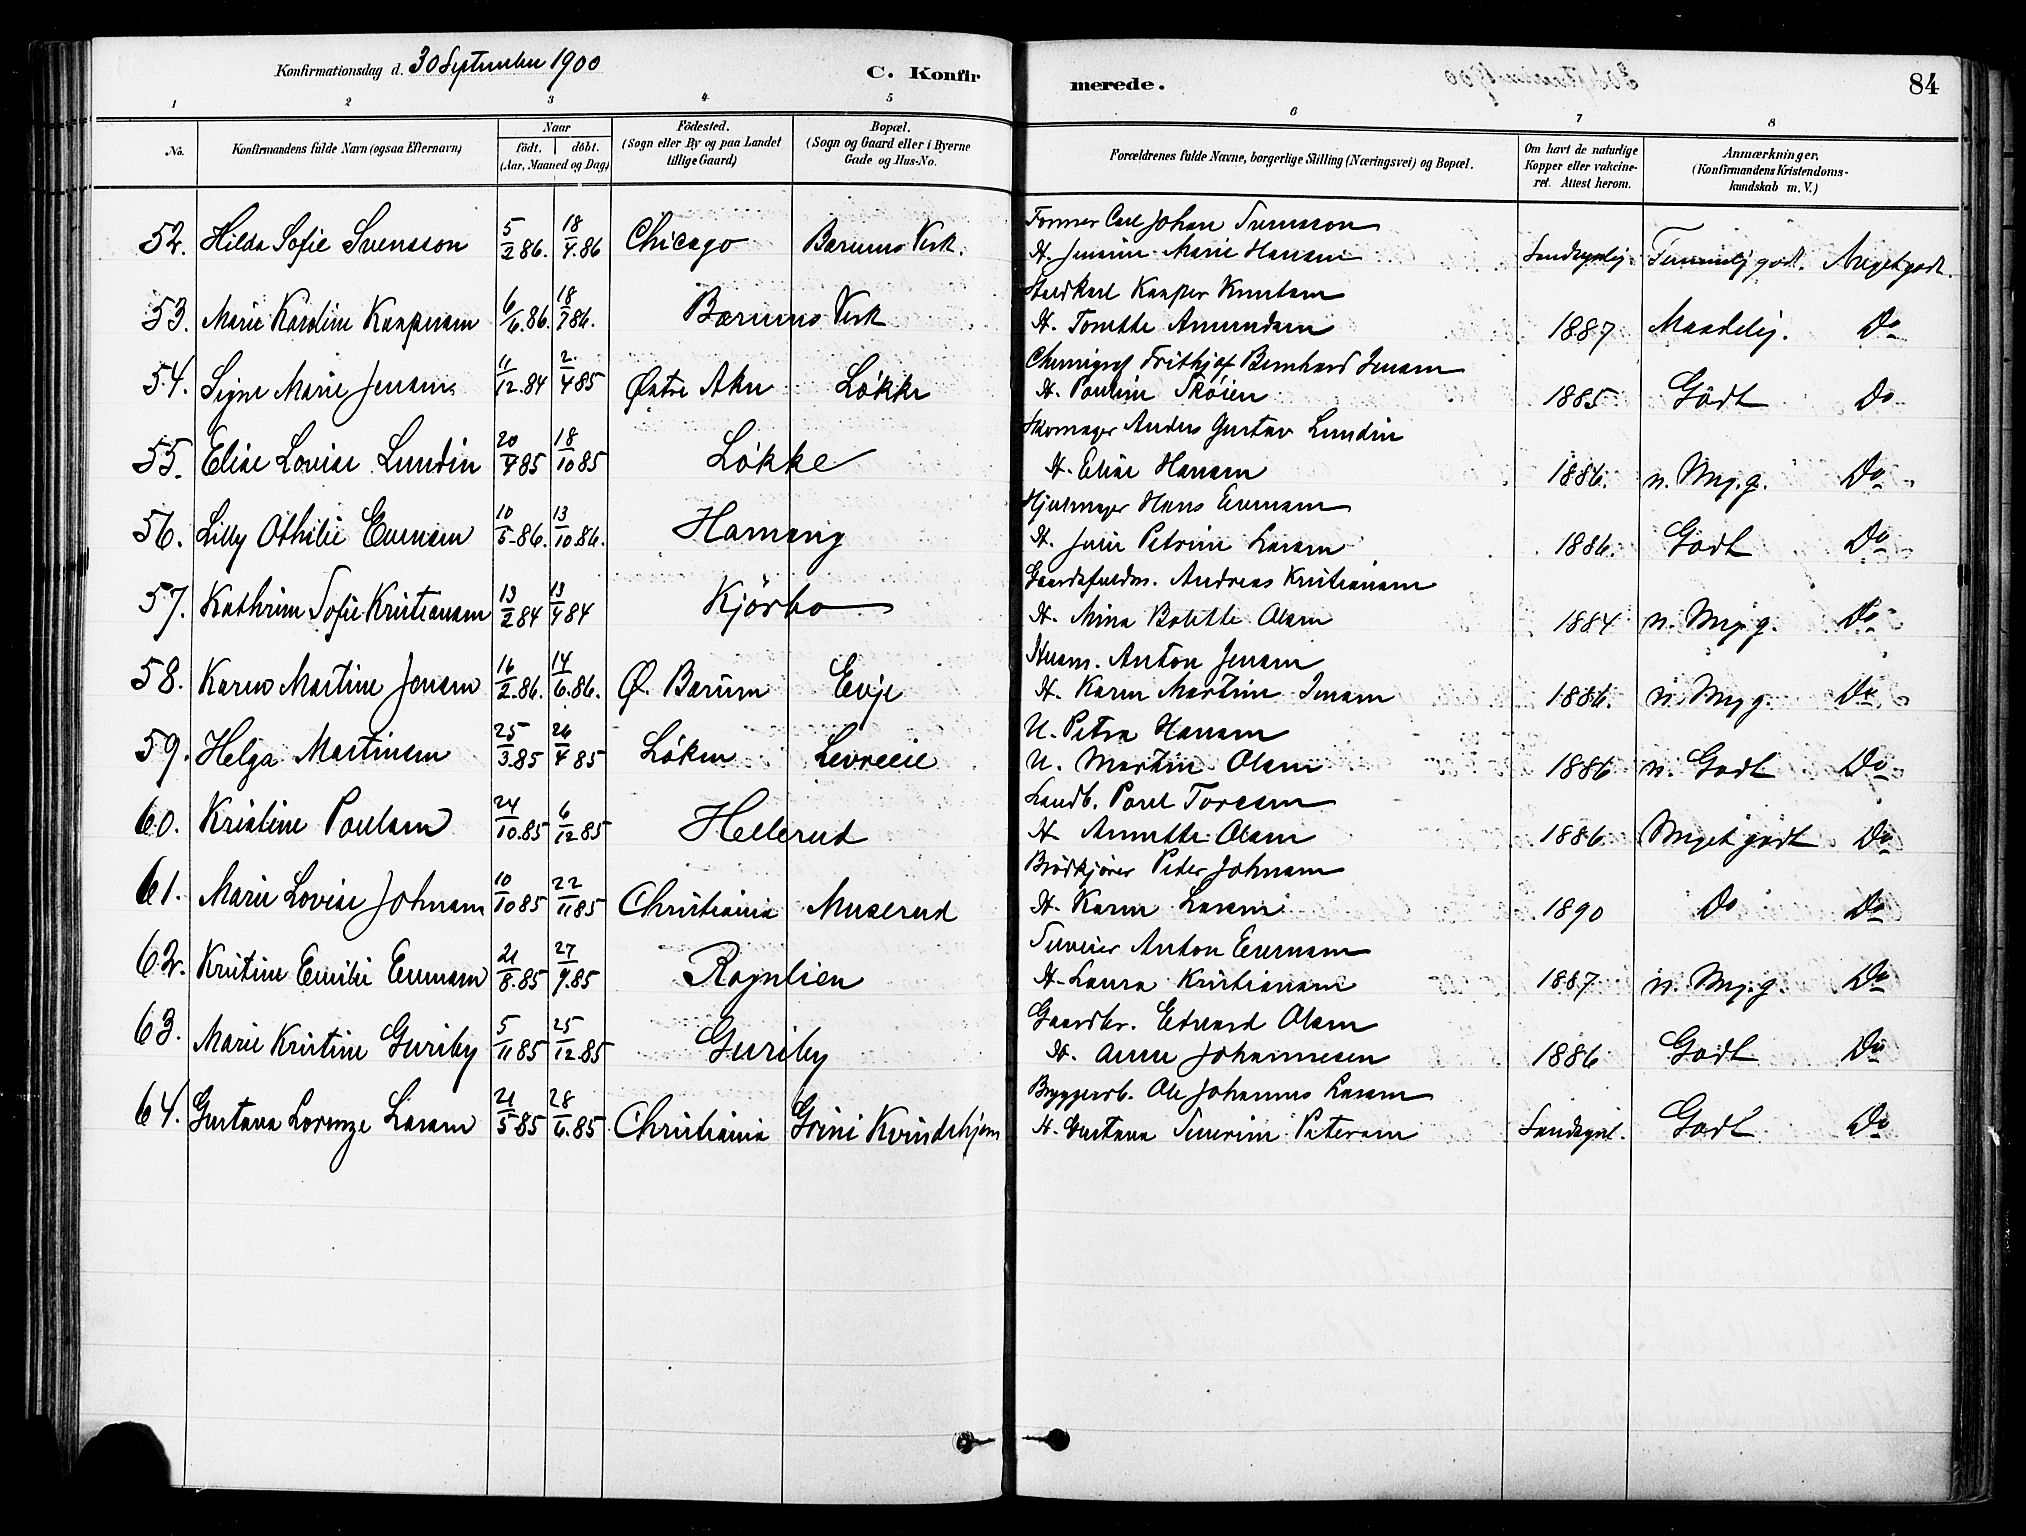 Konfirmationsdag d. 30 September 1900
C. Konfir
merede.
84
1 2 3 4 5 6 7 8
No.
Konfirmandens fulde Navn (ogsaa Efternavn)
Naar
födt. döbt.
(Aar, Maaned og Dag)
Födested.
(Sogn eller By og paa Landet
tillige Gaard)
Bopæl.
(Sogn og Gaard eller i Byerne
Gade og Hus-No.
Forældrenes fulde Navne, borgerlige Stilling (Næringsvei) og Bopæl.
Om havt de naturlige
Kopper eller vakcine-
ret. Attest herom.
Anmærkninger.
(Konfirmandens Kristendoms-
kundskab m. V.)
Former Carl Johan Svensson
52. Hilda Sofie Svensson 5/2 86. 18/4. 86 Chicago Bærums Verk. H. Marie Hansen godt. Meget godt.
Staldkarl Kasper Knutsen
53. Marie Karoline Kaspersen 6/6. 86. 18/7 86. Bærums Verk H. Tonette Amundsen 1887 Maadelig. Do
Chemigraf Frithjof Bernhard Jensen
54. Signe Marie Jensen 11/12. 84 2/4 85 Østre Aker Løkke H. Pouline Skøien 1885 Godt Do
Skomager Anders Gustav Lundin
55. Elise Lovise Lundin 20/9 85 18/10 85 Løkke H. Elise Hansen 1886. n. Meg. g. Do
Hjulmager Hans Evensen
56. Lilly Othilie Evensen 10/5 86. 13/10 86. Hamang H. Julie Petrine Larsen 1886. Godt Do
Gaardsfuldm. Andreas Kristiansen
57. Kathrine Sofie Kristiansen 13/2 84 13/4 84 Kjörbo H. Mina Bolette Olsen 1884 n. Meg. g. Do
Husm. Anton Jensen
58. Karen Martine Jensen 16/2. 86. 14/6. 86. Ø. Bærum Evje H. Karen Martine Jensen 1886. n. Meg g. Do
U. Petra Hansen
59. Helga Martinsen 25/3. 85 26/4 85 Løken Levreeie U. Martin Olsen 1886 n. Godt Do
Landb. Poul Toresen
60. Kristine Poulsen 24/10. 85 6/12 85 Hellerud H. Annette Olsen 1886 Meget godt Do
Brödkjører Peter Johnsen
61. Marie Lovise Johnsen 10/10 85 22/11 85 Christiania Muserud H. Karen Larsen 1890 Do Do
Anton Evensen
62. Kristine Emilie Evensen 21/8. 85 27/9. 85 Rognlien H. Laura Kristiansen 1887 n. Meg. g. Do
Gaardbr. Edvard Olsen
63. Marie Kristine Guriby 5/11 85 25/12. 85 Guriby H. Anne Johannesen 1886 Godt Do
Bryggersb. Ole Johannes Larsen
64. Gustava Lorenze Larsen 21/5 85 28/6. 85 Christiania Grini Kvindehjem H. Gustava Severine Petersen Godt Do